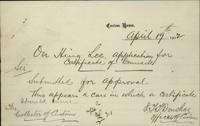 Custom House,
April 19th
On Hing Lee, application for
Certificate of
Sir
Submitted for approval.
This appears a case in which a certificate
should issue
The
Collector of Customs